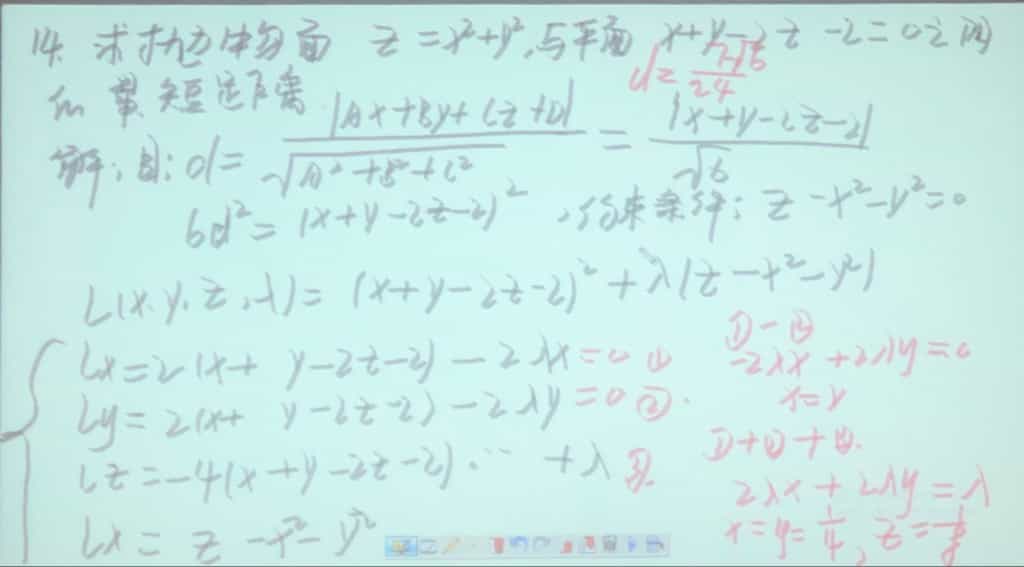 14. 求抛物面 z = x²+y², 与平面 x+y-2z-2=0之间
的最短距离 d = 7√6/24
解: 由: d = |Ax+By+Cz+D| / √(A²+B²+C²) = |x+y-2z-2| / √6
6d² = (x+y-2z-2)², 约束条件: z-x²-y²=0
L(x.y.z,λ) = (x+y-2z-2)² + λ(z-x²-y²)
Lx=2(x+ y-2z-2) - 2λx=0 ① ①-②
-2λx+2λy=0
Ly=2(x+ y-2z-2) - 2λy=0 ②. x=y
①+②+③.
Lz=-4(x+y-2z-2)... +λ ③. 2λx+2λy=λ
Lx= z-x²-y² x=y=1/4, z=1/8